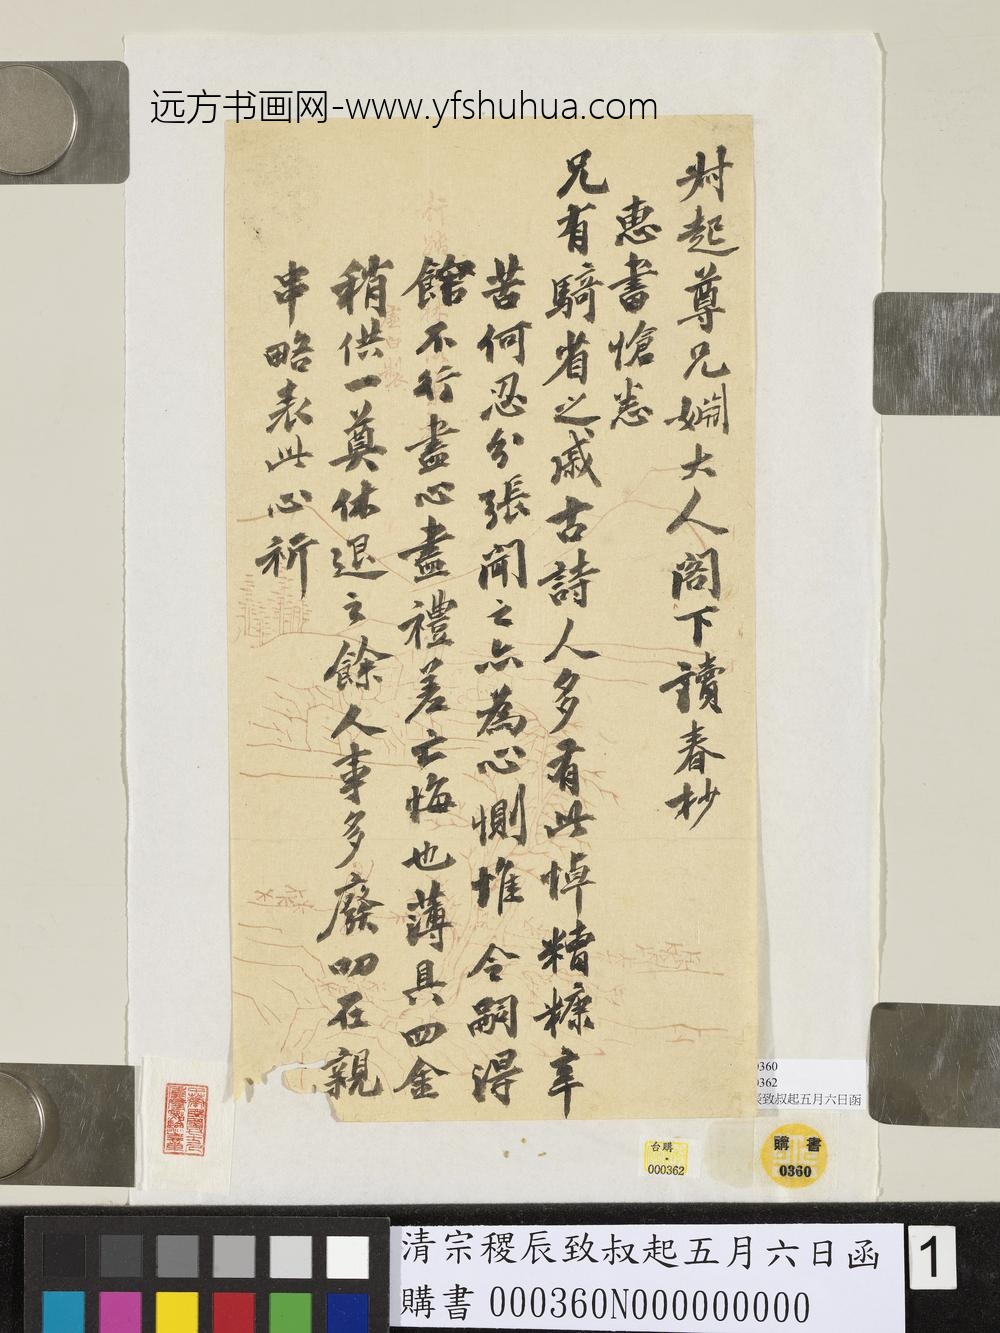 远方书画网-www.yfshuhua.com
尗起尊兄姻大人閤下讀春杪
惠書愴恙
兄有騎省之戚古詩人多有此悼糟糠辛
苦何忍分張聞之亦為心惻惟令嗣得
館不行盡心盡禮差亡悔也薄具四金
稍供一奠休退之餘人事多廢叨在親
串略表此心祈
0360
0362
辰致叔起五月六日函
台購
000362
購書
0360
清宗稷辰致叔起五月六日函
購書 000360N000000000
1